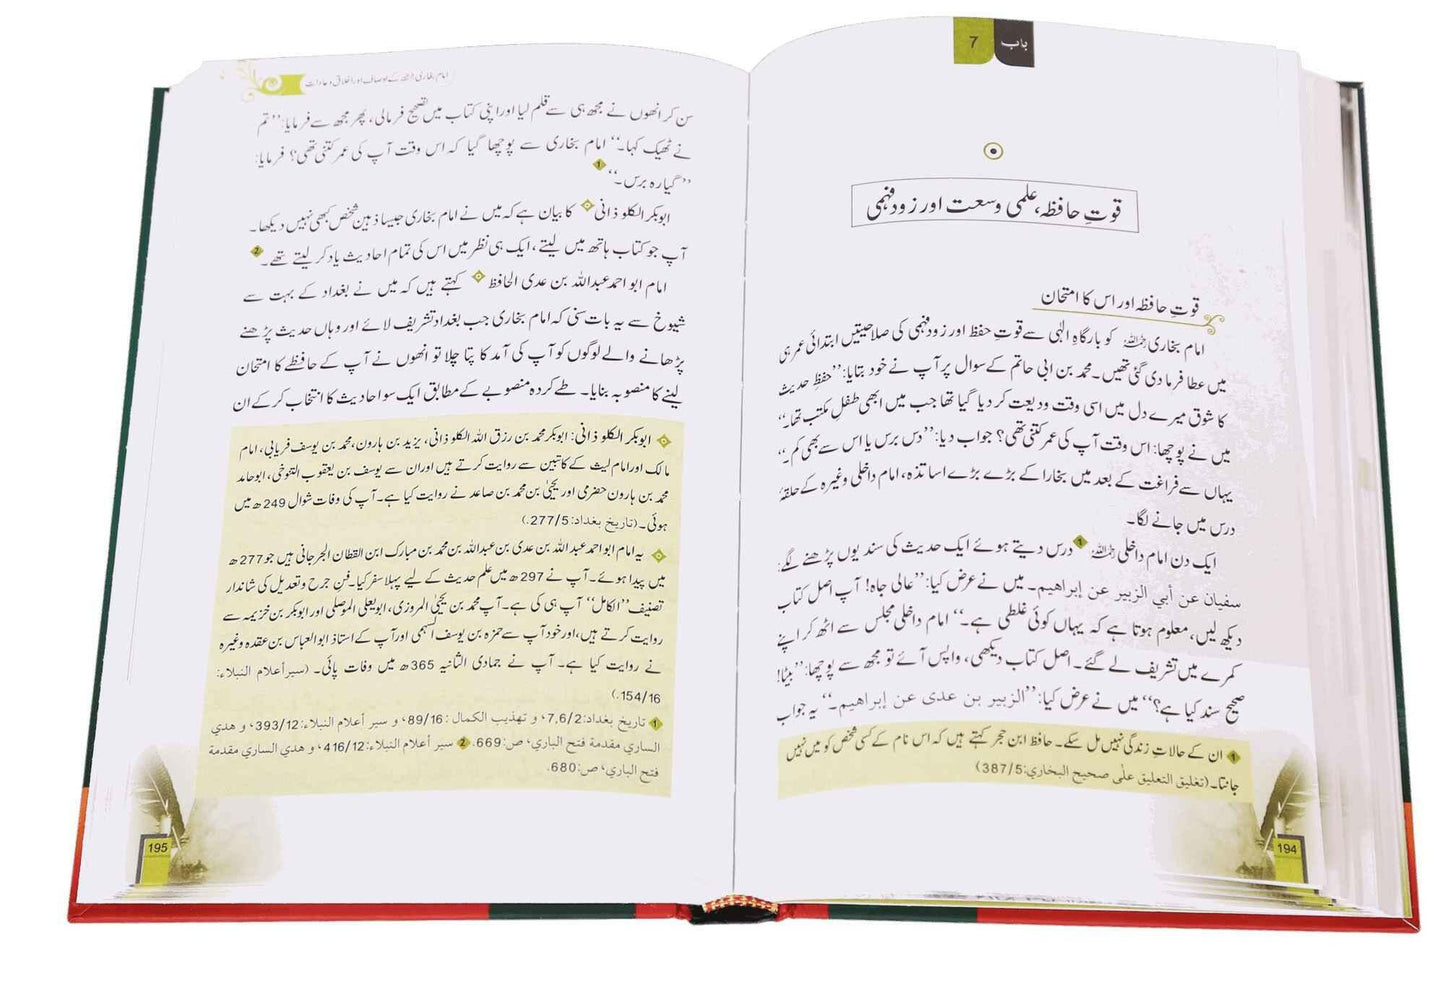 باب 7
قوتِ حافظہ، علمی وسعت اور زود فہمی
قوتِ حافظہ اور اس کا امتحان
امام بخاری رحمہ اللہ کو بارگاہِ الٰہی سے قوتِ حفظ اور زود فہمی کی صلاحیتیں ابتدائی عمر ہی
میں عطا فرما دی گئی تھیں۔ محمد بن ابی حاتم کے سوال پر آپ نے خود بتایا: ’’حفظِ حدیث
کا شوق میرے دل میں اسی وقت ودیعت کر دیا گیا تھا جب میں ابھی طفلِ مکتب تھا۔‘‘
میں نے پوچھا: اس وقت آپ کی عمر کتنی تھی؟ جواب دیا: ’’دس برس یا اس سے بھی کم۔‘‘
یہاں سے فراغت کے بعد میں بخارا کے بڑے بڑے اساتذہ، امام داخلی وغیرہ کے حلقۂ
درس میں جانے لگا۔
ایک دن امام داخلی رحمہ اللہ 1 درس دیتے ہوئے ایک حدیث کی سند یوں پڑھنے لگے:
سفيان عن أبي الزبير عن إبراهيم۔ میں نے عرض کیا: ’’عالی جاہ! آپ اصل کتاب
دیکھ لیں، معلوم ہوتا ہے کہ یہاں کوئی غلطی ہے۔‘‘ امام داخلی مجلس سے اٹھ کر اپنے
کمرے میں تشریف لے گئے۔ اصل کتاب دیکھی، واپس آئے تو مجھ سے پوچھا: ’’بیٹا!
صحیح سند کیا ہے؟‘‘ میں نے عرض کیا: ’’الزبير بن عدى عن إبراهيم۔‘‘ یہ جواب
1 ان کے حالاتِ زندگی نہیں مل سکے۔ حافظ ابن حجر کہتے ہیں کہ اس نام کے کسی شخص کو میں نہیں
جانتا۔ (تغليق التعليق على صحيح البخاري: 387/5)
194
امام بخاری رحمہ اللہ کے اوصاف اور اخلاق و عادات
سن کر انھوں نے مجھ ہی سے قلم لیا اور اپنی کتاب میں تصحیح فرمالی، پھر مجھ سے فرمایا: ’’تم
نے ٹھیک کہا۔‘‘ امام بخاری سے پوچھا گیا کہ اس وقت آپ کی عمر کتنی تھی؟ فرمایا:
’’گیارہ برس۔‘‘ 1
ابوبکر الکلوذانی کا بیان ہے کہ میں نے امام بخاری جیسا ذہین شخص کبھی نہیں دیکھا۔
آپ جو کتاب ہاتھ میں لیتے، ایک ہی نظر میں اس کی تمام احادیث یاد کر لیتے تھے۔ 2
امام ابو احمد عبداللہ بن عدی الحافظ کہتے ہیں کہ میں نے بغداد کے بہت سے
شیوخ سے یہ بات سنی کہ امام بخاری جب بغداد تشریف لائے اور وہاں حدیث پڑھنے
پڑھانے والے لوگوں کو آپ کی آمد کا پتا چلا تو انھوں نے آپ کے حافظے کا امتحان
لینے کا منصوبہ بنایا۔ طے کردہ منصوبے کے مطابق ایک سو احادیث کا انتخاب کر کے ان
ابوبکر الکلوذانی: ابوبکر محمد بن رزق اللہ الکلوذانی، یزید بن ہارون، محمد بن یوسف فریابی، امام
مالک اور امام لیث کے کاتبین سے روایت کرتے ہیں اور ان سے یوسف بن یعقوب التنوخی، ابو حامد
محمد بن ہارون حضرمی اور یحییٰ بن محمد بن صاعد نے روایت کیا ہے۔ آپ کی وفات شوال 249ھ میں
ہوئی۔ (تاريخ بغداد: 277/5.)
یہ امام ابو احمد عبداللہ بن عدی بن عبداللہ بن محمد بن مبارک ابن القطان الجرجانی ہیں جو 277ھ
میں پیدا ہوئے۔ آپ نے 297ھ میں علم حدیث کے لیے پہلا سفر کیا۔ فنِ جرح و تعدیل کی شاندار
تصنیف ’’الکامل‘‘ آپ ہی کی ہے۔ آپ محمد بن یحییٰ المروزی، ابو یعلی الموصلی اور ابوبکر بن خزیمہ سے
روایت کرتے ہیں، اور خود آپ سے حمزہ بن یوسف السہمی اور آپ کے استاذ ابو العباس بن عقدہ وغیرہ
نے روایت کیا ہے۔ آپ نے جمادی الثانیہ 365ھ میں وفات پائی۔ (سير أعلام النبلاء:
154/16.)
1 تاريخ بغداد: 7,6/2، و تهذيب الكمال: 89/16، و سير أعلام النبلاء: 393/12، و هدي
الساري مقدمة فتح الباري، ص: 669. 2 سير أعلام النبلاء: 416/12، و هدي الساري مقدمة
فتح الباري، ص: 680.
195